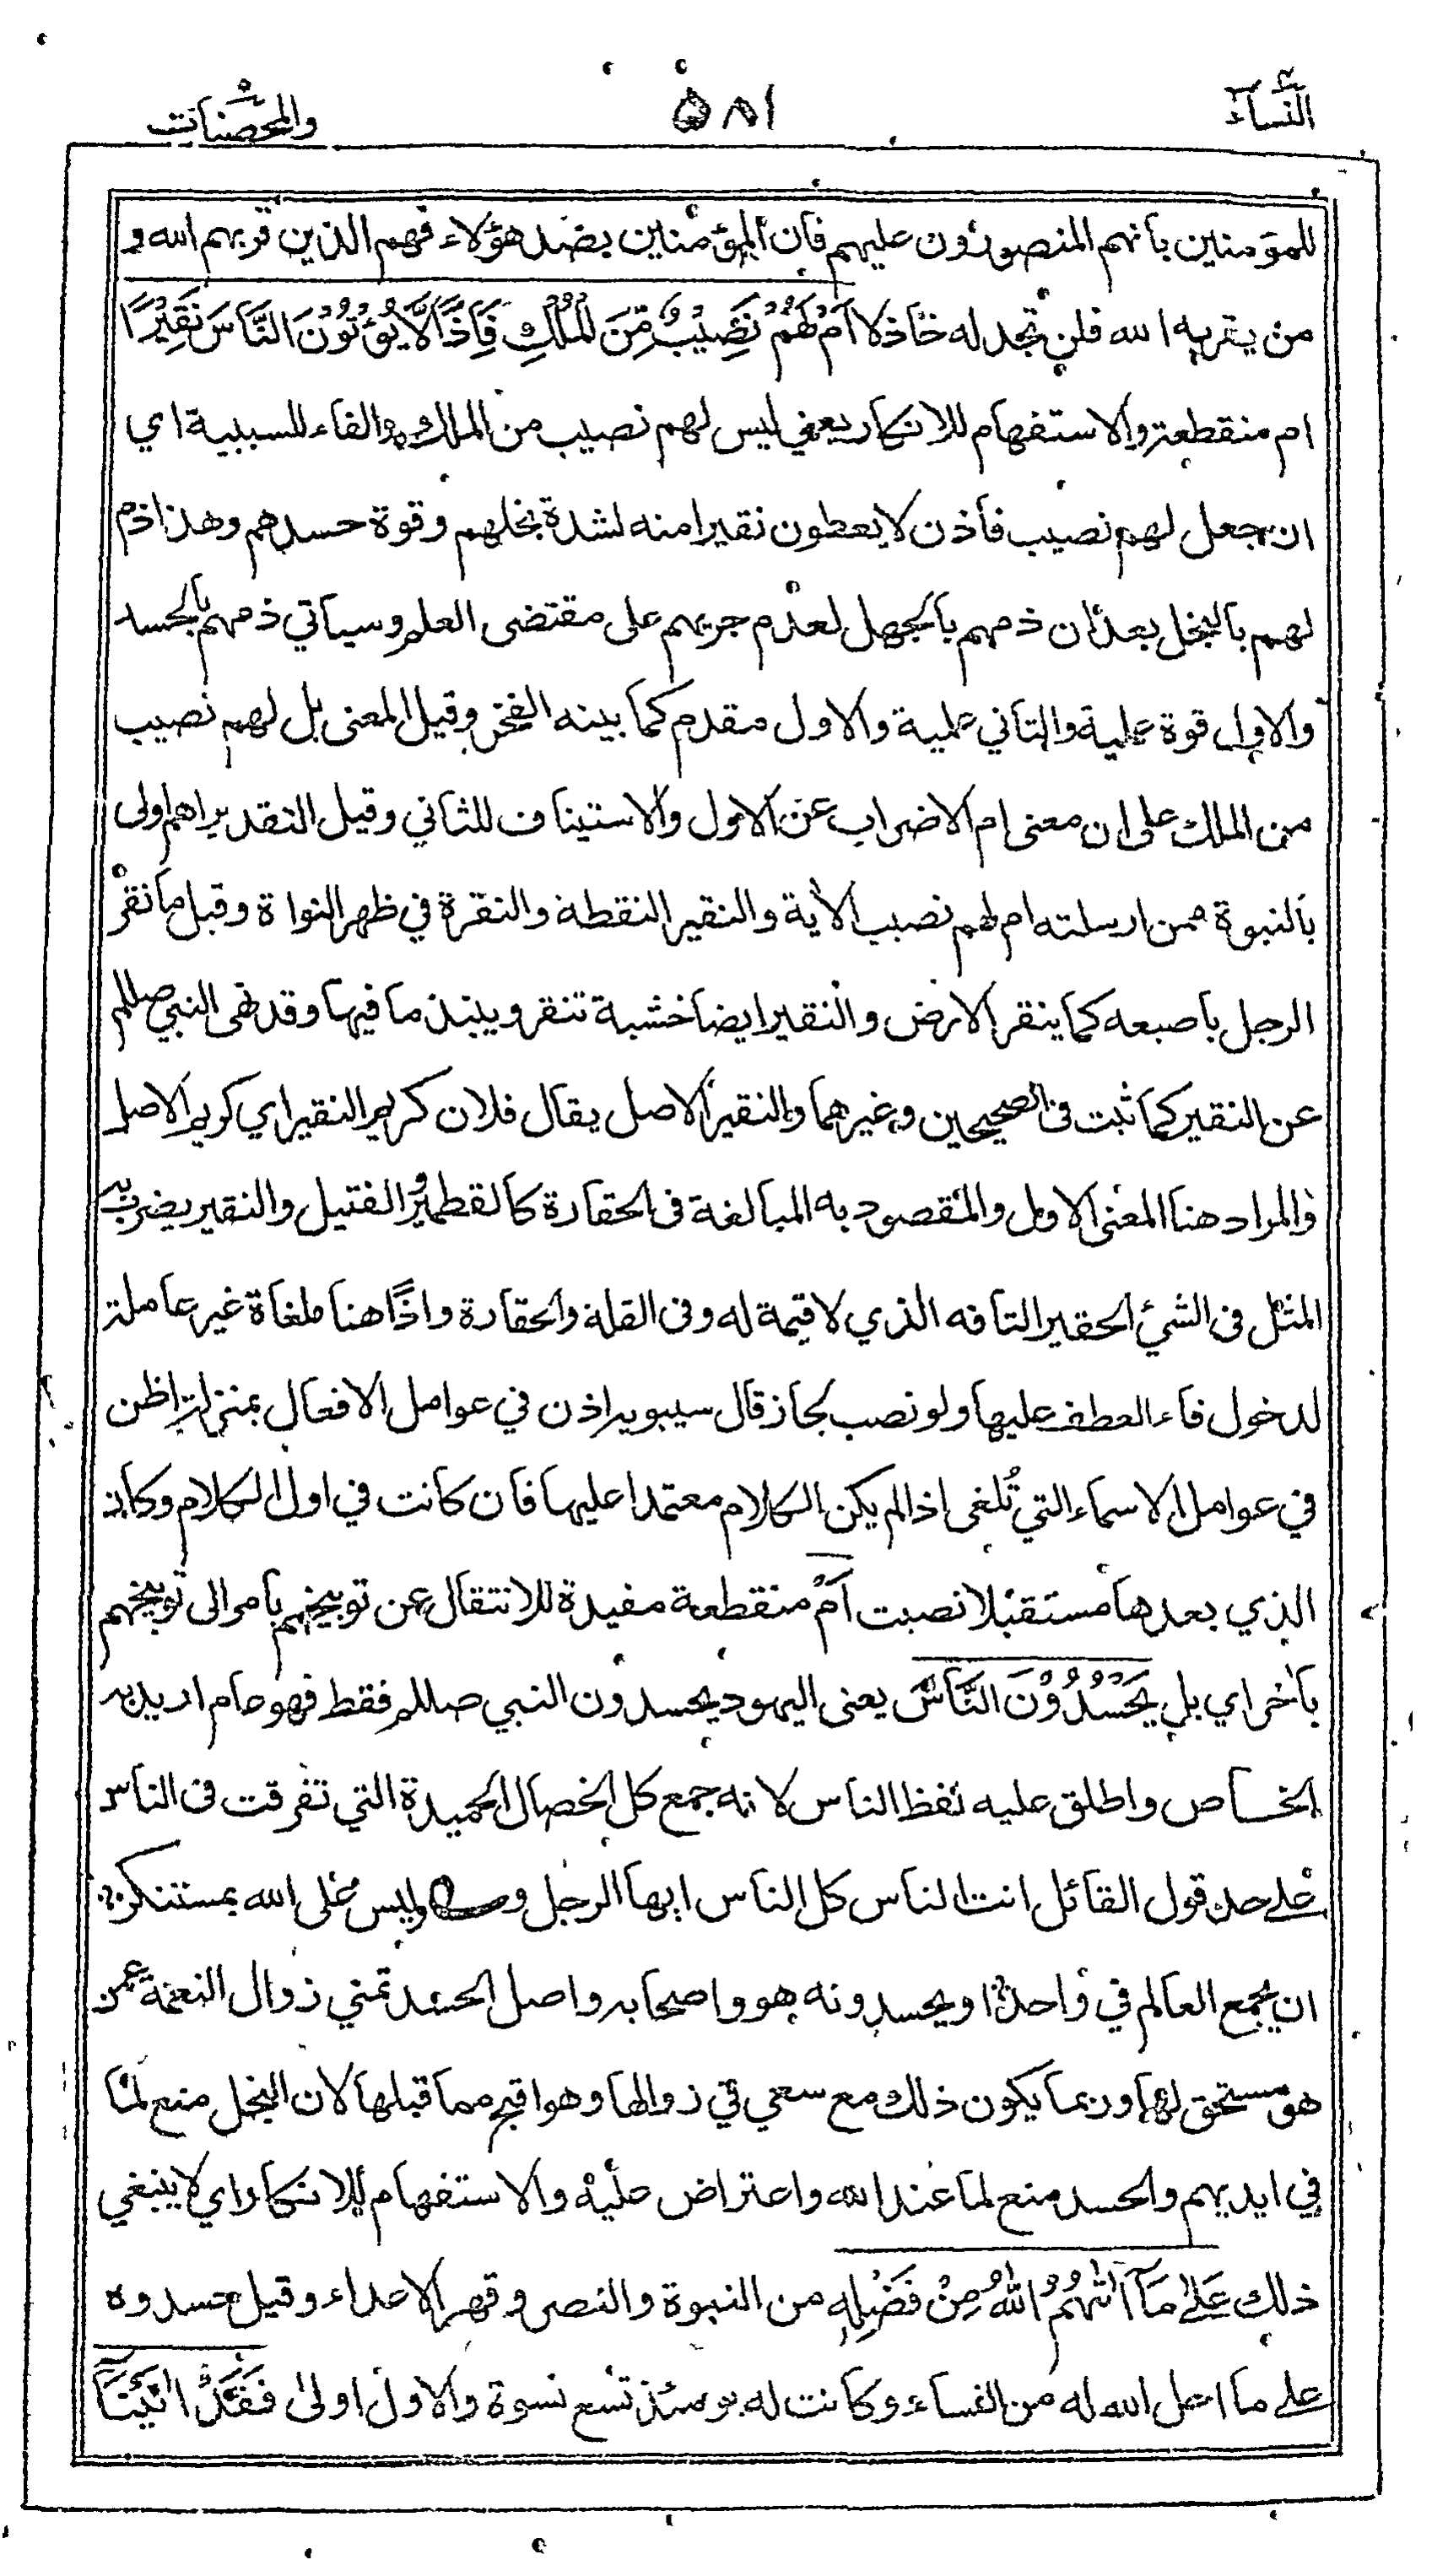 النساء ٥٨١ والمحصنات
للمؤمنين بانهم المنصورون عليهم فان المؤمنين بضد هؤلاء فهم الذين قربهم الله و
من يقربه الله فلن تجد له خاذلا اَمْ لَهُمْ نَصِيْبٌ مِّنَ الْمُلْكِ فَاِذًا لَّا يُؤْتُوْنَ النَّاسَ نَقِيْرًا
ام منقطعة والاستفهام للانكار يعني ليس لهم نصيب من الملك والفاء للسببية اي
ان جعل لهم نصيب فاذن لا يعطون نقيرا منه لشدة بخلهم وقوة حسدهم وهذا ذم
لهم بالبخل بعد ان ذمهم بالجهل لعدم جريهم على مقتضى العلم وسياتي ذمهم بالحسد
والاول قوة علمية والثاني عملية والاول مقدم كما بينه الفخر وقيل المعنى بل لهم نصيب
من الملك على ان معنى ام الاضراب عن الاول والاستيناف للثاني وقيل التقدير اهم اولى
بالنبوة ممن ارسلته ام لهم نصيب الاية والنقير النقطة والنقرة في ظهر النواة وقيل ما نقر
الرجل باصبعه كما ينقر الارض والنقير ايضا خشبة تنقر وينبذ ما فيها وقد نهى النبي صللم
عن النقير كما ثبت في الصحيحين وغيرهما والنقير الاصل يقال فلان كريم النقير اي كريم الاصل
والمراد هنا المعنى الاول والمقصود به المبالغة في الحقارة كالقطمير والفتيل والنقير يضرب به
المثل في الشيء الحقير التافه الذي لا قيمة له وفي القلة والحقارة واذًا هنا ملغاة غير عاملة
لدخول فاء العطف عليها ولو نصب لجاز قال سيبويه اذن في عوامل الافعال بمنزلة اظن
في عوامل الاسماء التي تُلغى اذا لم يكن الكلام معتمدا عليها فان كانت في اول الكلام وكان
الذي بعدها مستقبلا نصبت اَمْ منقطعة مفيدة للانتقال عن توبيخهم بامر الى توبيخهم
باخر اي بل يَحْسُدُوْنَ النَّاسَ يعني اليهود يحسدون النبي صللم فقط فهو عام اريد به
الخاص واطلق عليه لفظ الناس لانه جمع كل الخصال الحميدة التي تفرقت في الناس
على حد قول القائل انت الناس كل الناس ايها الرجل و ليس على الله بمستنكر
ان يجمع العالم في واحد او يحسدونه هو واصحابه واصل الحسد تمني زوال النعمة عمن
هو مستحق لها وربما يكون ذلك مع سعي في زوالها وهو اقبح مما قبلها لان البخل منع لما
في ايديهم والحسد منع لما عند الله واعتراض عليه والاستفهام للانكار اي لا ينبغي
ذلك عَلٰى مَآ اٰتٰهُمُ اللّٰهُ مِنْ فَضْلِهٖ من النبوة والنصر وقهر الاعداء وقيل حسدوه
على ما احل الله له من النساء وكانت له يومئذ تسع نسوة والاول اولى فَقَدْ اٰتَيْنَآ